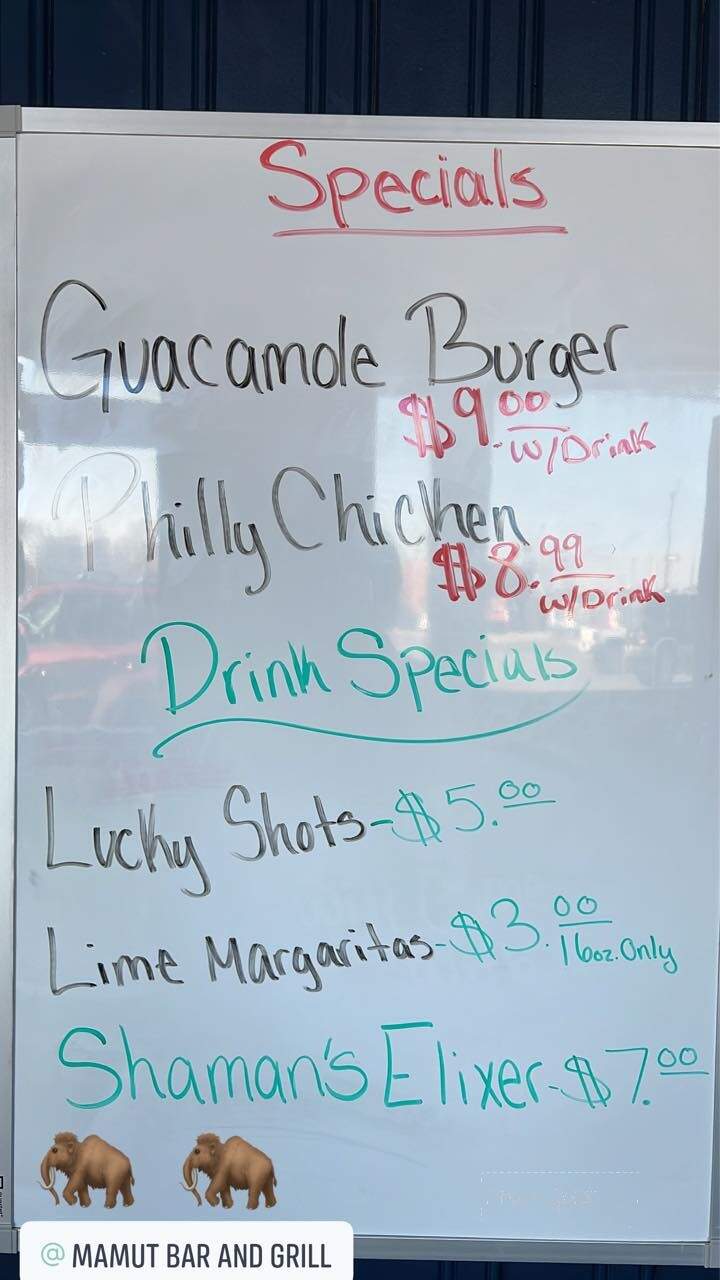 Specials
Guacamole Burger
$9.00 w/Drink
Philly Chicken
$8.99 w/Drink
Drink Specials
Lucky Shots - $5.00
Lime Margaritas - $3.00 16oz. Only
Shaman's Elixer - $7.00
@ MAMUT BAR AND GRILL